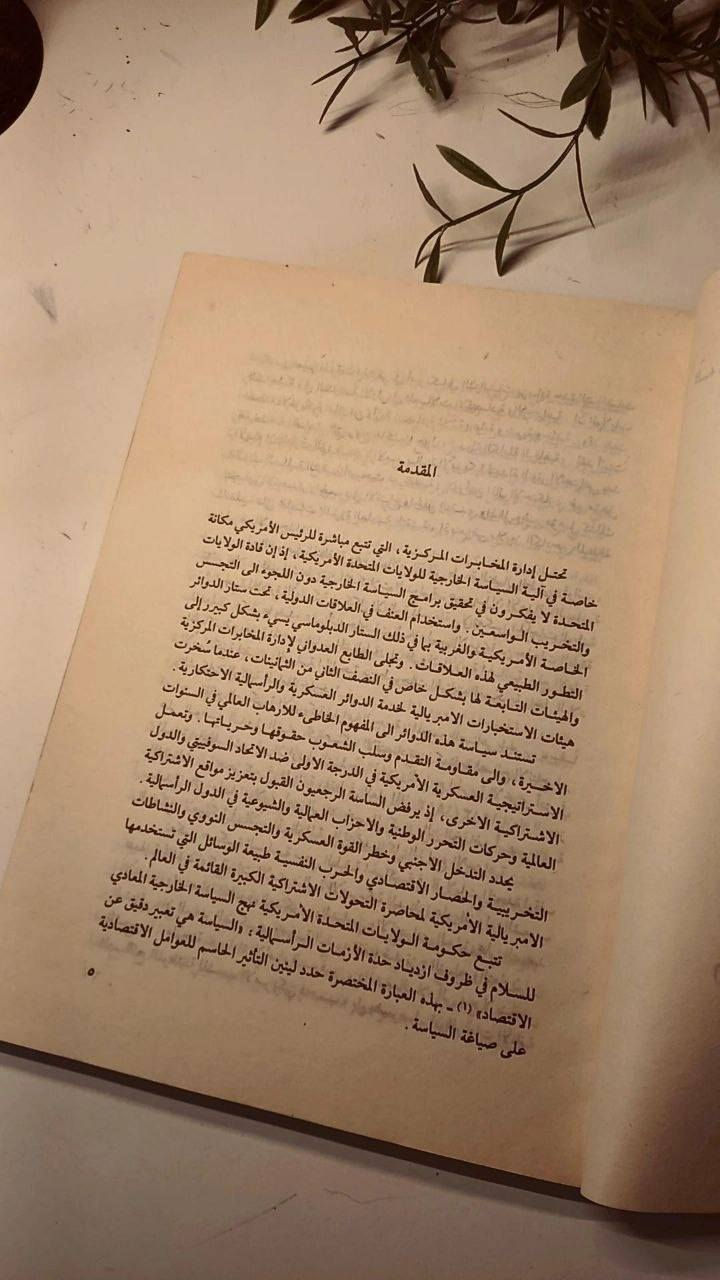 المقدمة
تحتل إدارة المخابرات المركزية ، التي تتبع مباشرة للرئيس الأمريكي مكانة
خاصة في آلية السياسة الخارجية للولايات المتحدة الأمريكية ، إذ إن قادة الولايات
المتحدة لا يفكرون في تحقيق برامج السياسة الخارجية دون اللجوء الى التجسس
والتخريب الواسعين . واستخدام العنف في العلاقات الدولية ، تحت ستار الدوائر
الخاصة الأمريكية والغربية بما في ذلك الستار الدبلوماسي يسيء بشكل كبير إلى
التطور الطبيعي لهذه العلاقات . وتجلى الطابع العدواني لإدارة المخابرات المركزية
والهيئات التابعة لها بشكل خاص في النصف الثاني من الثمانينات ، عندما سُخرت
هيئات الاستخبارات الامبريالية لخدمة الدوائر العسكرية والرأسمالية الاحتكارية .
تستند سياسة هذه الدوائر الى المفهوم الخاطىء للارهاب العالمي في السنوات
الاخيرة ، والى مقاومة التقدم وسلب الشعوب حقوقها وحرياتها . وتعمل
الاستراتيجية العسكرية الأمريكية في الدرجة الاولى ضد الاتحاد السوفييتي والدول
الاشتراكية الاخرى ، إذ يرفض الساسة الرجعيون القبول بتعزيز مواقع الاشتراكية
العالمية وحركات التحرر الوطنية والاحزاب العمالية والشيوعية في الدول الرأسمالية .
يحدد التدخل الاجنبي وخطر القوة العسكرية والتجسس النووي والنشاطات
التخريبية والحصار الاقتصادي والحرب النفسية طبيعة الوسائل التي تستخدمها
الامبريالية الأمريكية لمحاصرة التحولات الاشتراكية الكبيرة القائمة في العالم .
تتبع حكومة الولايات المتحدة الأمريكية نهج السياسة الخارجية المعادي
للسلام في ظروف ازدياد حدة الأزمات الرأسمالية ، «السياسة هي تعبير دقيق عن
الاقتصاد» (١) ـ بهذه العبارة المختصرة حدد لينين التأثير الحاسم للعوامل الاقتصادية
على صياغة السياسة .
٥